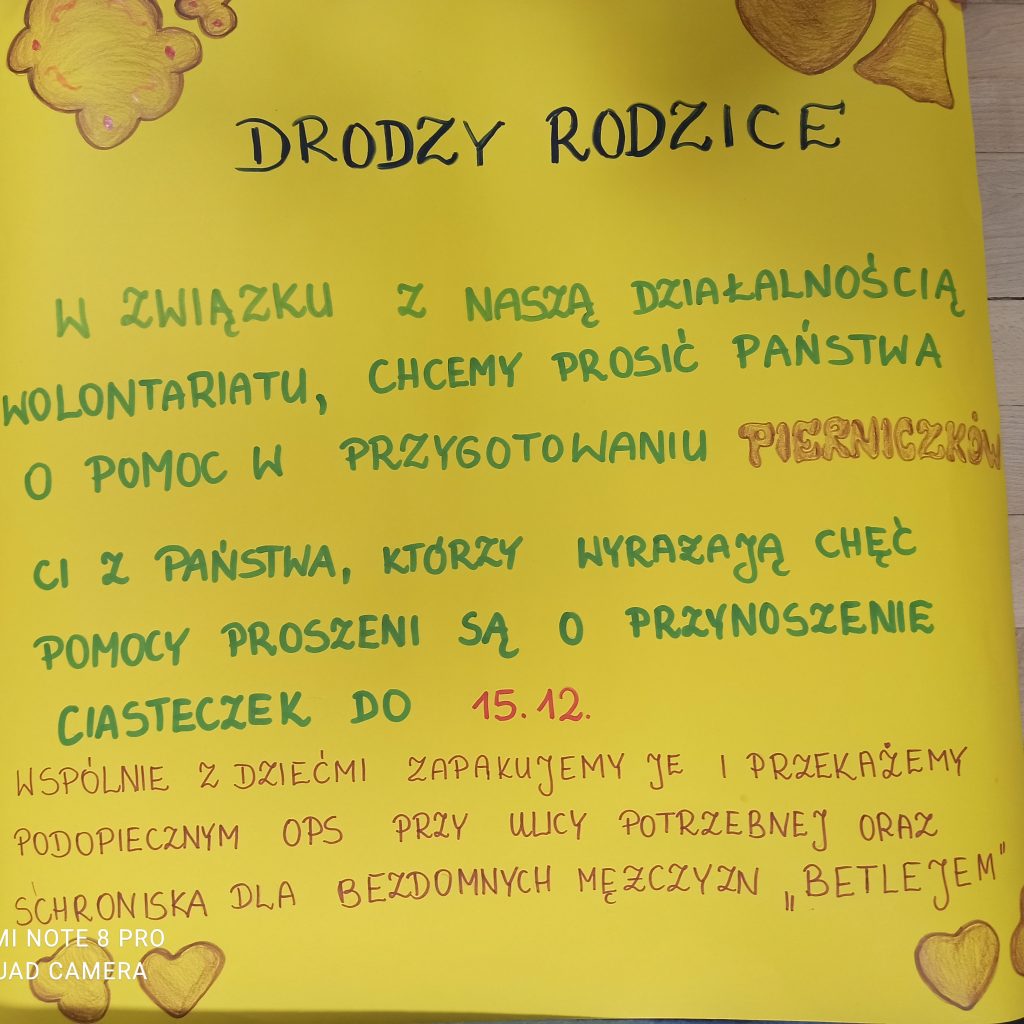 DRODZY RODZICE
W ZWIĄZKU Z NASZĄ DZIAŁALNOŚCIĄ
WOLONTARIATU, CHCEMY PROSIĆ PAŃSTWA
O POMOC W PRZYGOTOWANIU PIERNICZKÓW
CI Z PAŃSTWA, KTÓRZY WYRAZAJĄ CHĘĆ
POMOCY PROSZENI SĄ O PRZYNOSZENIE
CIASTECZEK DO 15.12.
WSPÓLNIE Z DZIEĆMI ZAPAKUJEMY JE I PRZEKAŻEMY
PODOPIECZNYM OPS PRZY ULICY POTRZEBNEJ ORAZ
SCHRONISKA DLA BEZDOMNYCH MĘZCZYZN „BETLEJEM"
MI NOTE 8 PRO
UAD CAMERA